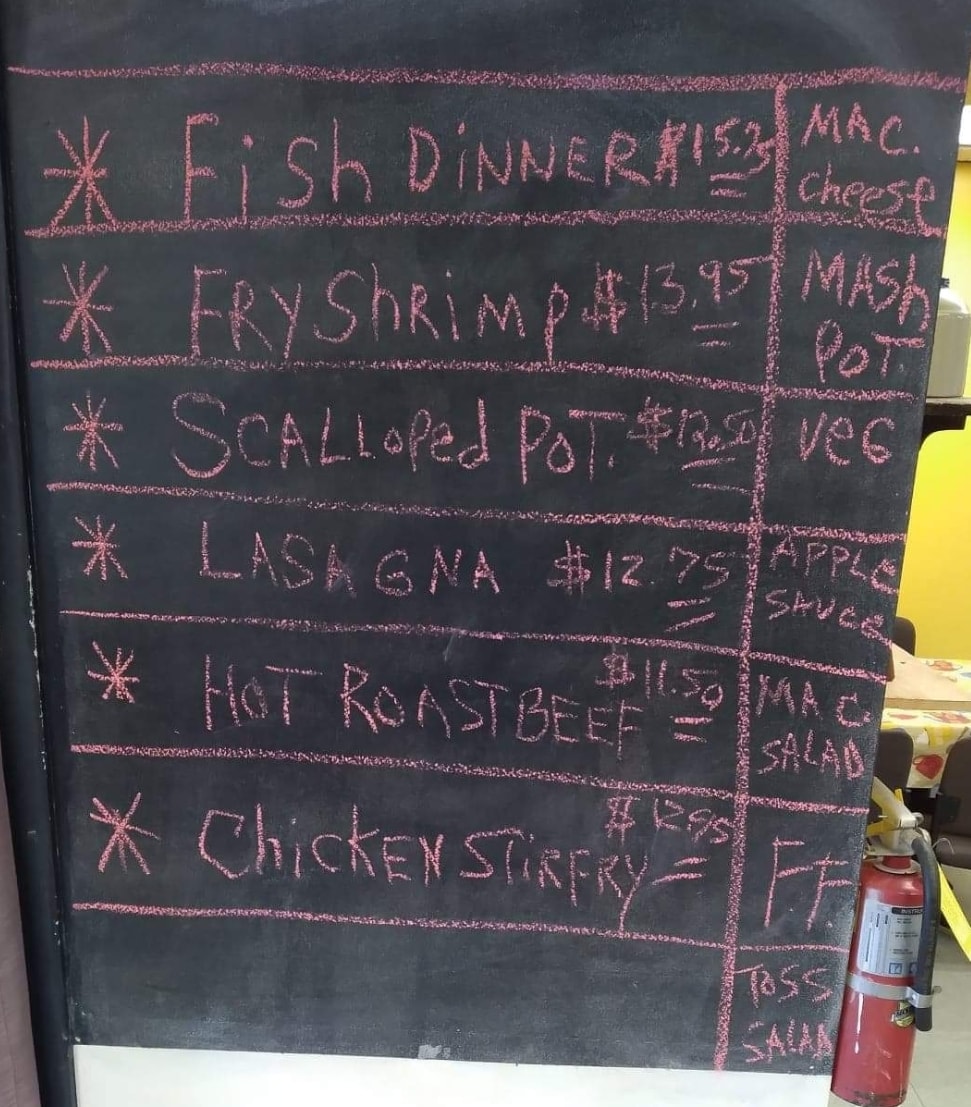 Fish DiNNER $15.25
FRY ShRimp $13.95
SCALLoped PoT. $12.50
LASAGNA $12.75
HoT ROAST BEEF $11.50
ChicKEN STiRFRY $12.95
MAC.
Cheese
MASh
PoT.
VEG
APPLE
SAUCE
MAC
SALAD
FF
TOSS
SALAD